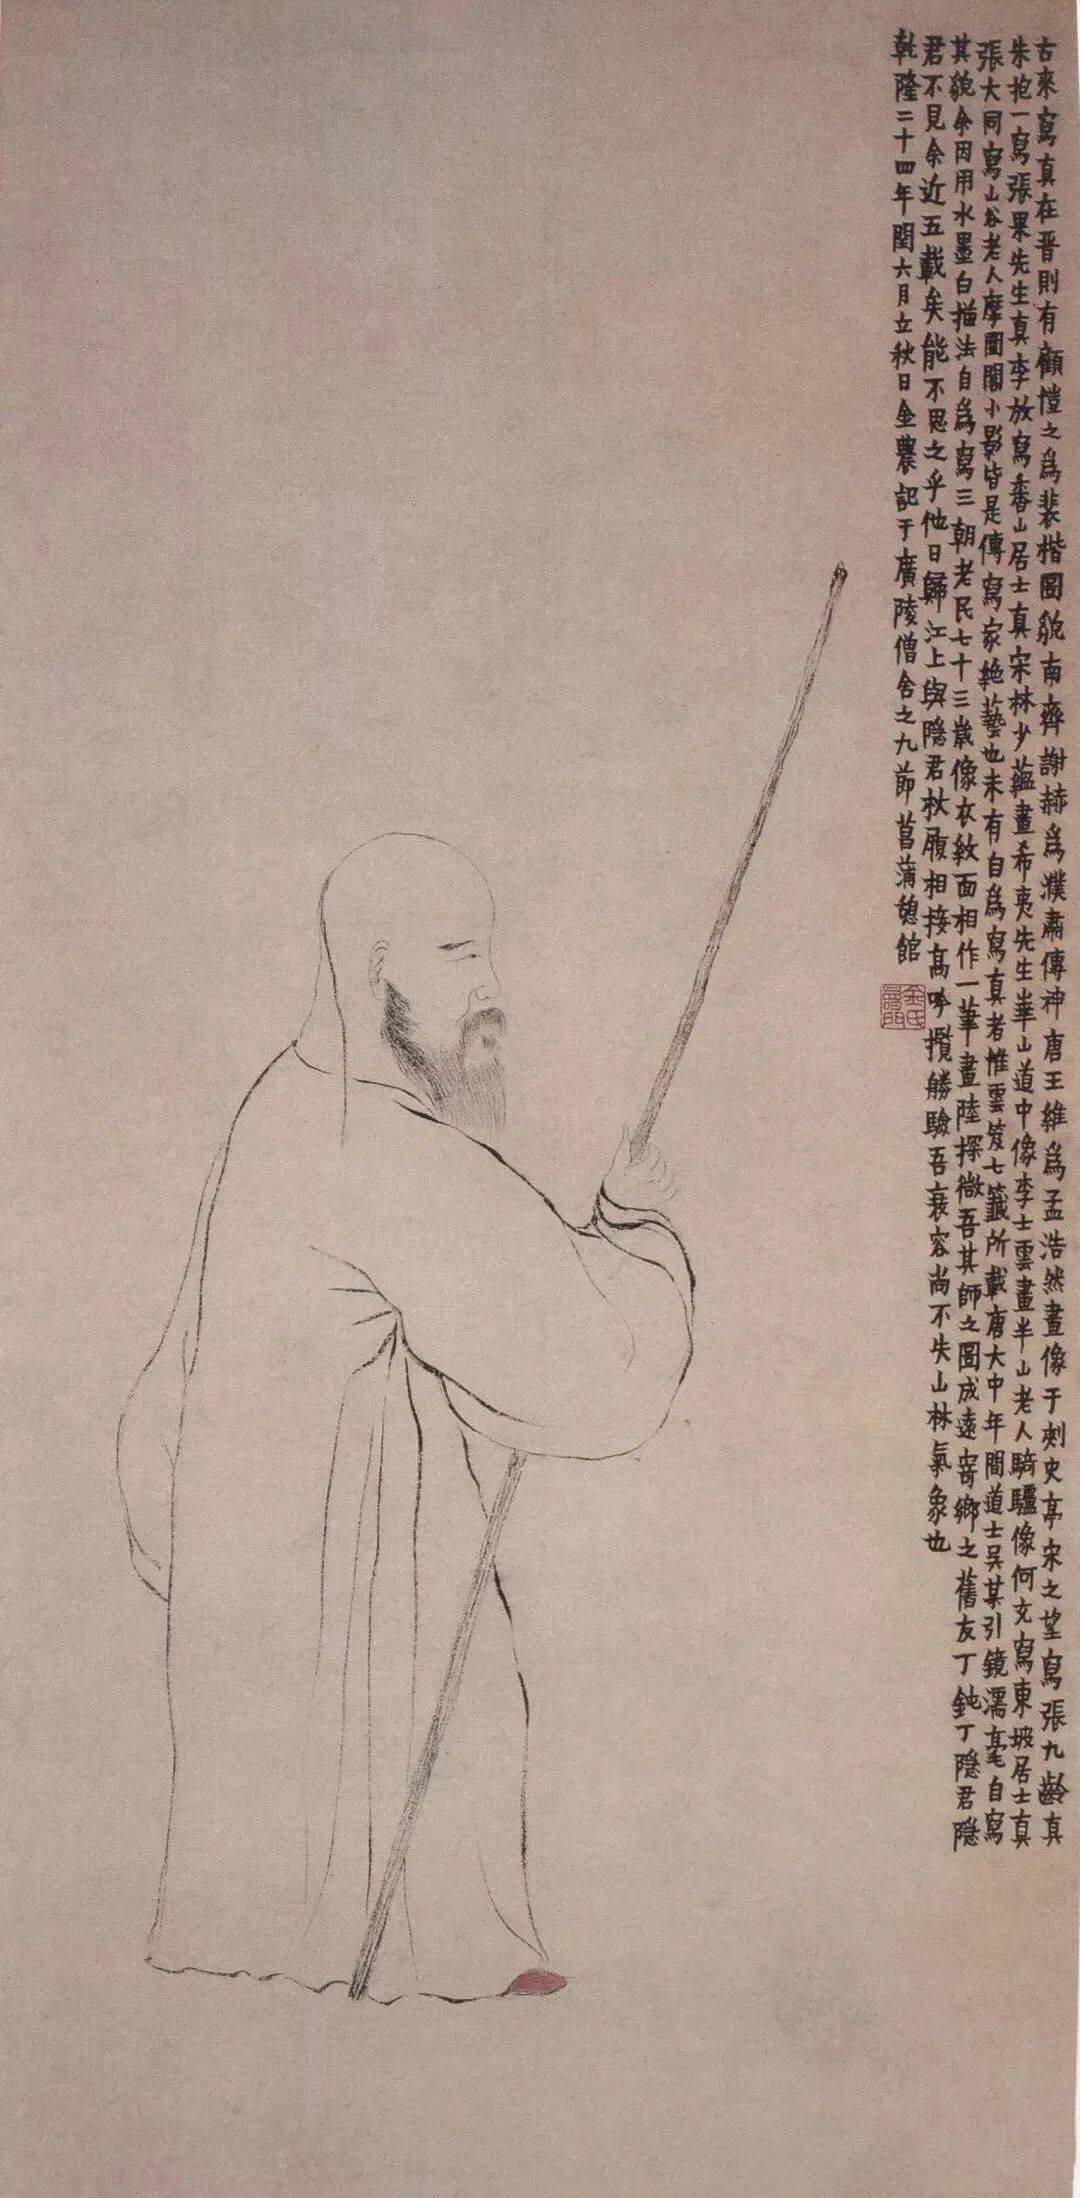 古來寫真在晉則有顧愷之為裴楷圖貌南齊謝赫為濮肅傳神唐王維為孟浩然畫像于刺史亭宋之望寫張九齡真
朱抱一寫張果先生真李放寫香山居士真宋林少蘊畫希夷先生華山道中像李士雲畫半山老人騎驢像何充寫東坡居士真
張大同寫山谷老人摩圍閣小影皆是傳寫家絶藝也未有自為寫真者惟雲笈七籤所載唐大中年間道士吳某引鏡濡毫自寫
其貌余因用水墨白描法自為寫三朝老民七十三歲像衣紋面相作一筆畫陸探微吾其師之圖成遠寄鄉之舊友丁鈍丁隱君隱
君不見余近五載矣能不思之乎他日歸江上與隱君杖履相接高吟攬勝驗吾衰容尚不失山林氣象也
乾隆二十四年閏六月立秋日金農記于廣陵僧舍之九節菖蒲憩館
金氏